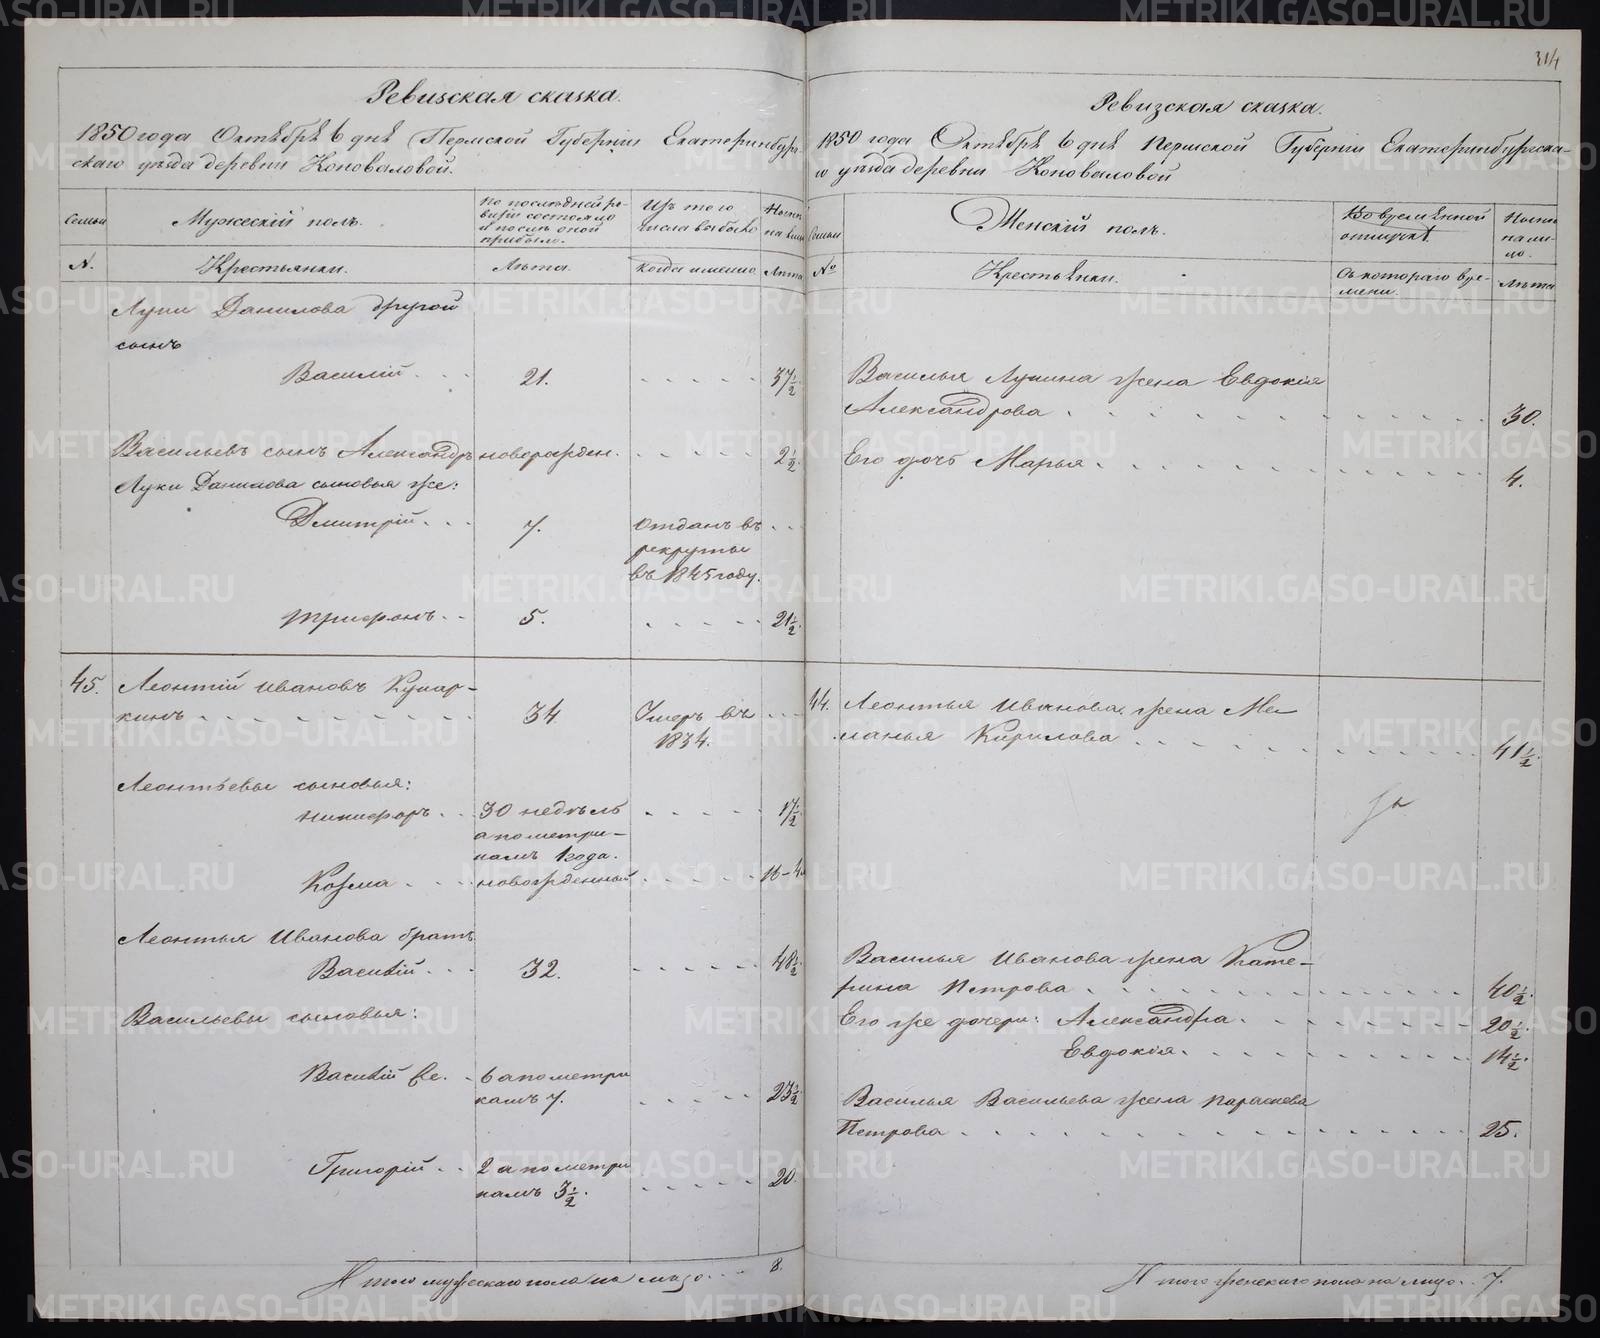 314
Ревизская сказка.
1850 года Октября 6 дня Пермской Губерніи Екатеринбург-
скаго уѣзда деревни Коноваловой.
Семьи
Мужескій полъ.
По послѣдней ре-
визіи состояло
и послѣ оной
прибыло.
Изъ того
числа выбыло
Нынѣ
на лицо
№.
Крестьянки.
Лѣта.
когда именно
Лѣта
Луки Данилова другой
сынъ
Василій . . . 21. . . . . . 37½.
Васильевъ сынъ Александръ новорожден. . . . . . 2½.
Луки Данилова сыновья же:
Дмитрій . . . 7. отданъ въ . .
рекруты
въ 1845 году.
Трифонъ . . 5. . . . . . 21½.
45. Леонтій Ивановъ Кукар-
кинъ . . . . . . . . 34 Умеръ въ . . .
1834.
Леонтьевы сыновья:
Никифоръ . . 30 недѣль . . . . . 17½.
а по метри-
камъ 1 года.
Козма . . . новорожденный . . . . . 16-ти
Леонтья Иванова братъ
Василій . . . 32. . . . . . 48½.
Васильевы сыновья:
Василій . 6 а по метри
камъ 7. . . . . . 23½.
Григорій . . 2 а по метри
камъ 3½. . . . . . 20.
Итого мужескаго пола на лицо . . . 8.
Ревизская сказка.
1850 года Октября 6 дня Пермской Губерніи Екатеринбургска-
го уѣзда деревни Коноваловой
Семьи
Женскій полъ.
Во временной
отлучкѣ.
Нынѣ
на ли-
цо.
№
Крестьянки.
Съ котораго вре-
мени.
Лѣта
Василья Лукина жена Евдокія
Александрова . . . . . . . . . . . 30.
Его дочь Марья . . . . . . . . . . 4.
44. Леонтья Иванова жена Ме-
ланья Кирилова . . . . . . . . . 41½.
Василья Иванова жена Кате-
рина Петрова . . . . . . . . . . 40½.
Его же дочери: Александра . . . . . . . 20½.
Евдокія . . . . . . . . 14½.
Василья Васильева жена Параскева
Петрова . . . . . . . . . . . . 25.
Итого женскаго пола на лицо . . 7.
METRIKI.GASO-URAL.RU